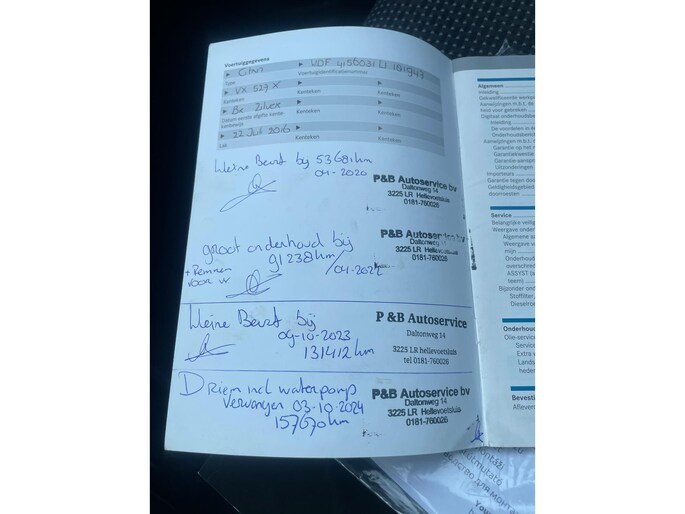 Voertuiggegevens
Citan WDF 4156031 U 191947
Type Voertuigidentificatienummer
VX 527 X
Kenteken Kenteken Kenteken
Br. Zilver
Datum eerste afgifte kenteken Kenteken Kenteken
kentekens
22 Juli 2016
Lak Kenteken Kenteken
kleine Beurt bij 53681km
04-2020
P&B Autoservice bv
Daltonweg 14
3225 LR Hellevoetsluis
0181-760026
groot onderhoud bij
91238km/
+ Remmen 04-2022
voor w
P&B Autoservice bv
Daltonweg 14
3225 LR Hellevoetsluis
0181-760026
kleine Beurt bij
09-10-2023
131412km
P&B Autoservice
Daltonweg 14
3225 LR hellevoetsluis
tel 0181-760026
D Riem incl waterpomp
Vervangen 03-10-2024
157670km
P&B Autoservice bv
Daltonweg 14
3225 LR Hellevoetsluis
0181-760026
Algemeen
Inleiding
Gekwalificeerde werkp
Aanwijzingen m.b.t. de
held voor gebruiken
Digitaal onderhoudsbe
Inleiding
De voordelen in
Onderhoudsberich
Aanwijzingen m.b.t.
Garantie op het
Garantiekwestie
Garantie-aanspr
Uitzonderingen
Importeurs
Garantie tegen doo
Geldigheidsgebied
doorroesten
Service
Belangrijke veilig
Weergave onder
Algemene
Weergave
mijn
Onderhoud
overschred
ASSYST (
teem)
Bijzonder ond
Stoffilter,
Dieselro
Onderhoud
Olie-service
Service
Extra v
Landsp
heden
Bevesti
Afleve